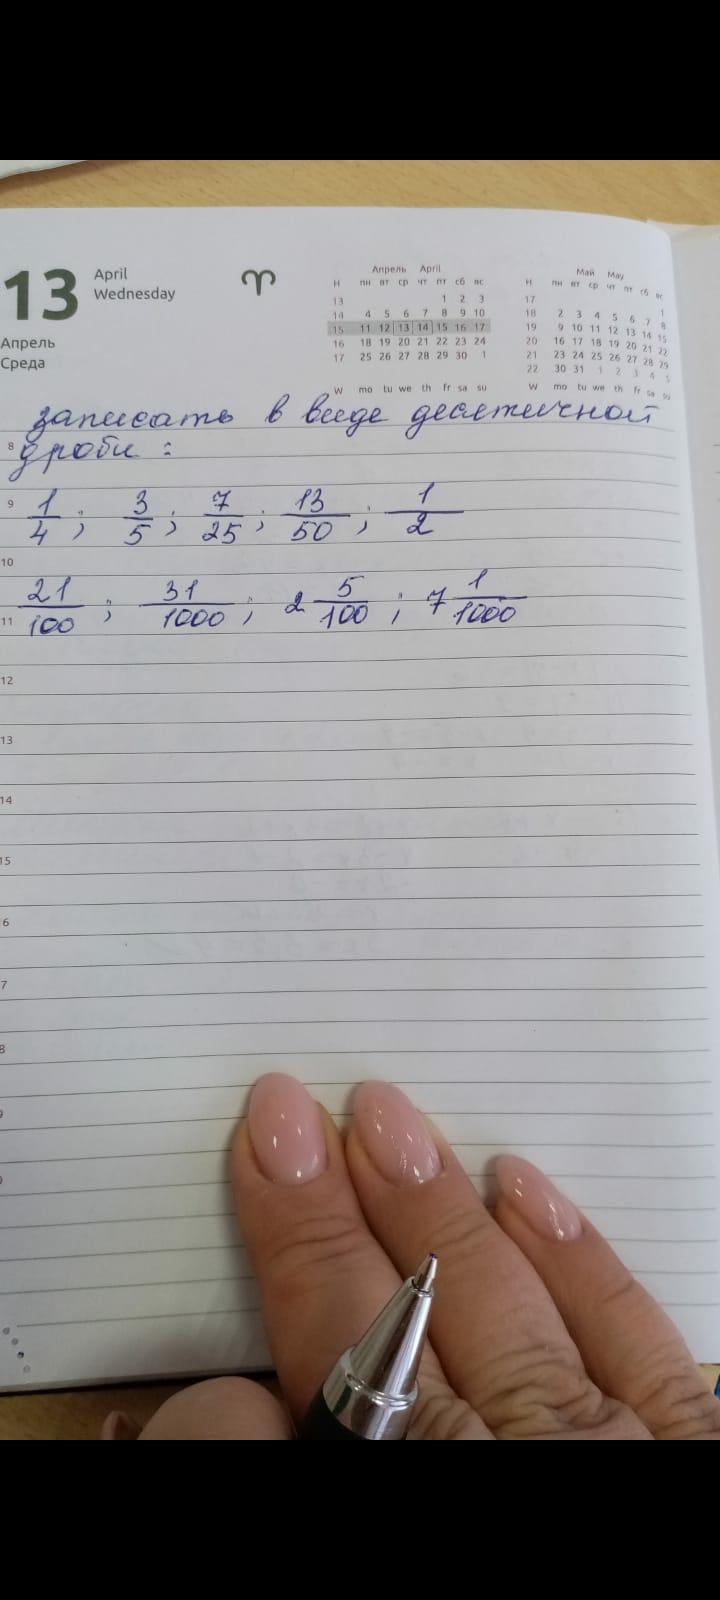 13 April
Wednesday
Апрель
Среда
Апрель April
Н пн вт ср чт пт сб вс
13 1 2 3
14 4 5 6 7 8 9 10
15 11 12 13 14 15 16 17
16 18 19 20 21 22 23 24
17 25 26 27 28 29 30 1
W mo tu we th fr sa su
Май May
Н пн вт ср чт пт сб вс
17 1
18 2 3 4 5 6 7 8
19 9 10 11 12 13 14 15
20 16 17 18 19 20 21 22
21 23 24 25 26 27 28 29
22 30 31 1 2 3 4 5
W mo tu we th fr sa su
записать в виде десятичной
8 дроби :
9 1/4 ; 3/5 ; 7/25 ; 13/50 ; 1/2
10
11 21/100 ; 31/1000 ; 2 5/100 ; 7 1/1000
12
13
14
15
6
7
8
9